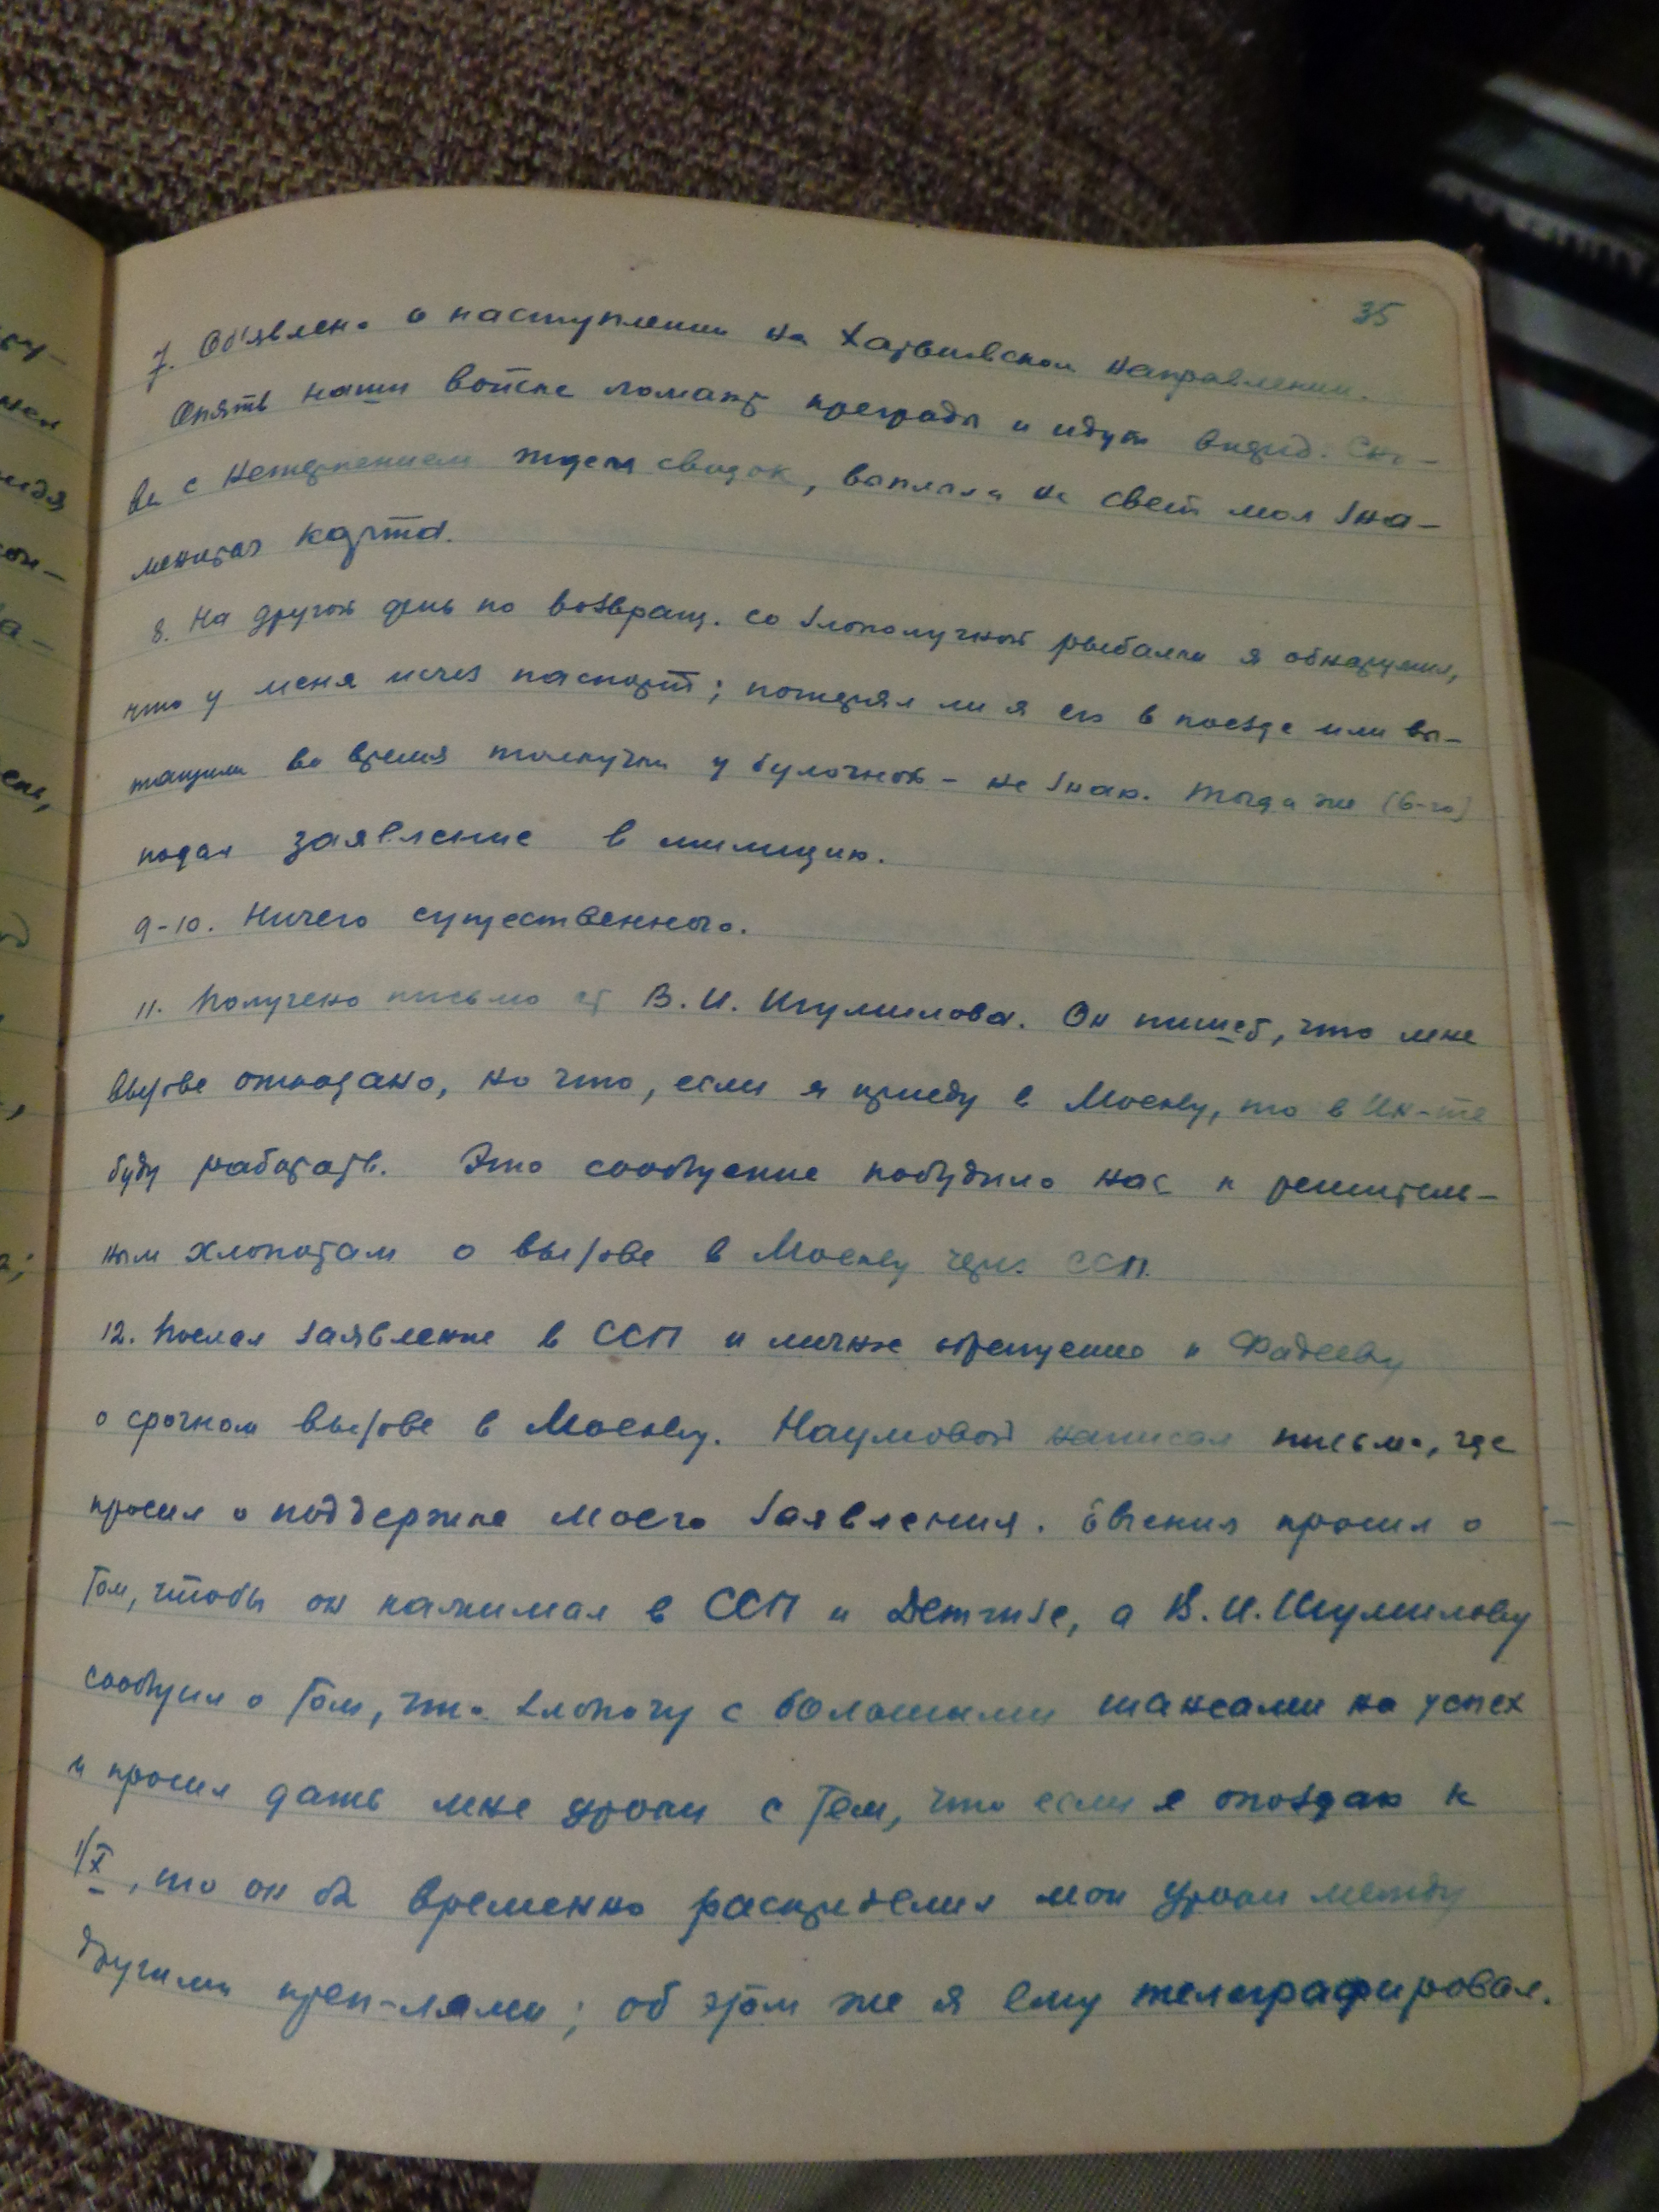 35
7. Об'явлено о наступлении на Харьковском направлении.
Опять наши войска ломают преграды и идут вперед. Сно-
ва с нетерпением ждем сводок, выплыла на свет моя зна-
менитая карта.
8. На другой день по возвращ. со злополучной рыбалки я обнаружил,
что у меня исчез паспорт; потерял ли я его в поезде или вы-
тащили во время толкучки у булочной – не знаю. Тогда же (6-го)
подал заявление в милицию.
9-10. Ничего существенного.
11. Получено письмо от В. И. Шумилова. Он пишет, что мне
вызове отказано, но что, если я приеду в Москву, то в Ин-те
буду работать. Это сообщение побудило нас к решитель-
ным хлопотам о вызове в Москву через ССП.
12. Послал заявление в ССП и личное обращение к Фадееву
о срочном вызове в Москву. Наумовой написал письмо, где
просил о поддержке моего заявления. Евгения просил о
том, чтобы он нажимал в ССП и Детгизе, а В. И. Шумилову
сообщил о том, что хлопочу с большими шансами на успех
и просил дать мне уроки с тем, что если я опоздаю к
1/X, то он бы временно распределил мои уроки между
другими преп-лями; об этом же я ему телеграфировал.